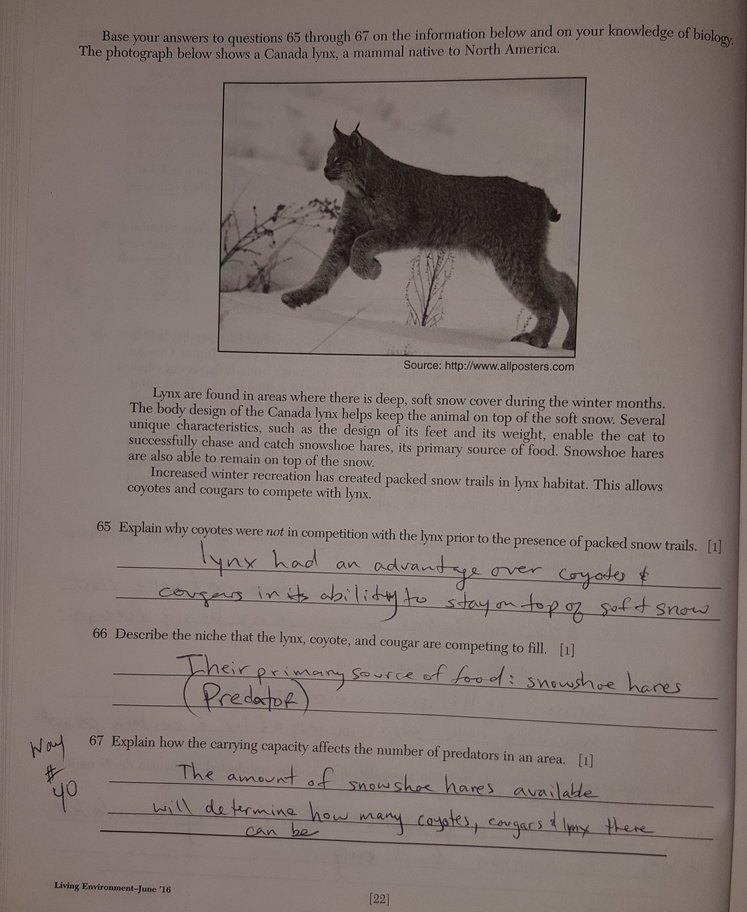 Base your answers to questions 65 through 67 on the information below and on your knowledge of biology.
The photograph below shows a Canada lynx, a mammal native to North America.
Source: http://www.allposters.com
Lynx are found in areas where there is deep, soft snow cover during the winter months.
The body design of the Canada lynx helps keep the animal on top of the soft snow. Several
unique characteristics, such as the design of its feet and its weight, enable the cat to
successfully chase and catch snowshoe hares, its primary source of food. Snowshoe hares
are also able to remain on top of the snow.
Increased winter recreation has created packed snow trails in lynx habitat. This allows
coyotes and cougars to compete with lynx.
65 Explain why coyotes were not in competition with the lynx prior to the presence of packed snow trails. [1]
lynx had an advantage over coyotes &
cougars in its ability to stay on top of soft snow
66 Describe the niche that the lynx, coyote, and cougar are competing to fill. [1]
Their primary source of food: snowshoe hares
(Predator)
67 Explain how the carrying capacity affects the number of predators in an area. [1]
Way
#
40
The amount of snowshoe hares available
will determine how many coyotes, cougars & lynx there
can be
Living Environment–June '16
[22]